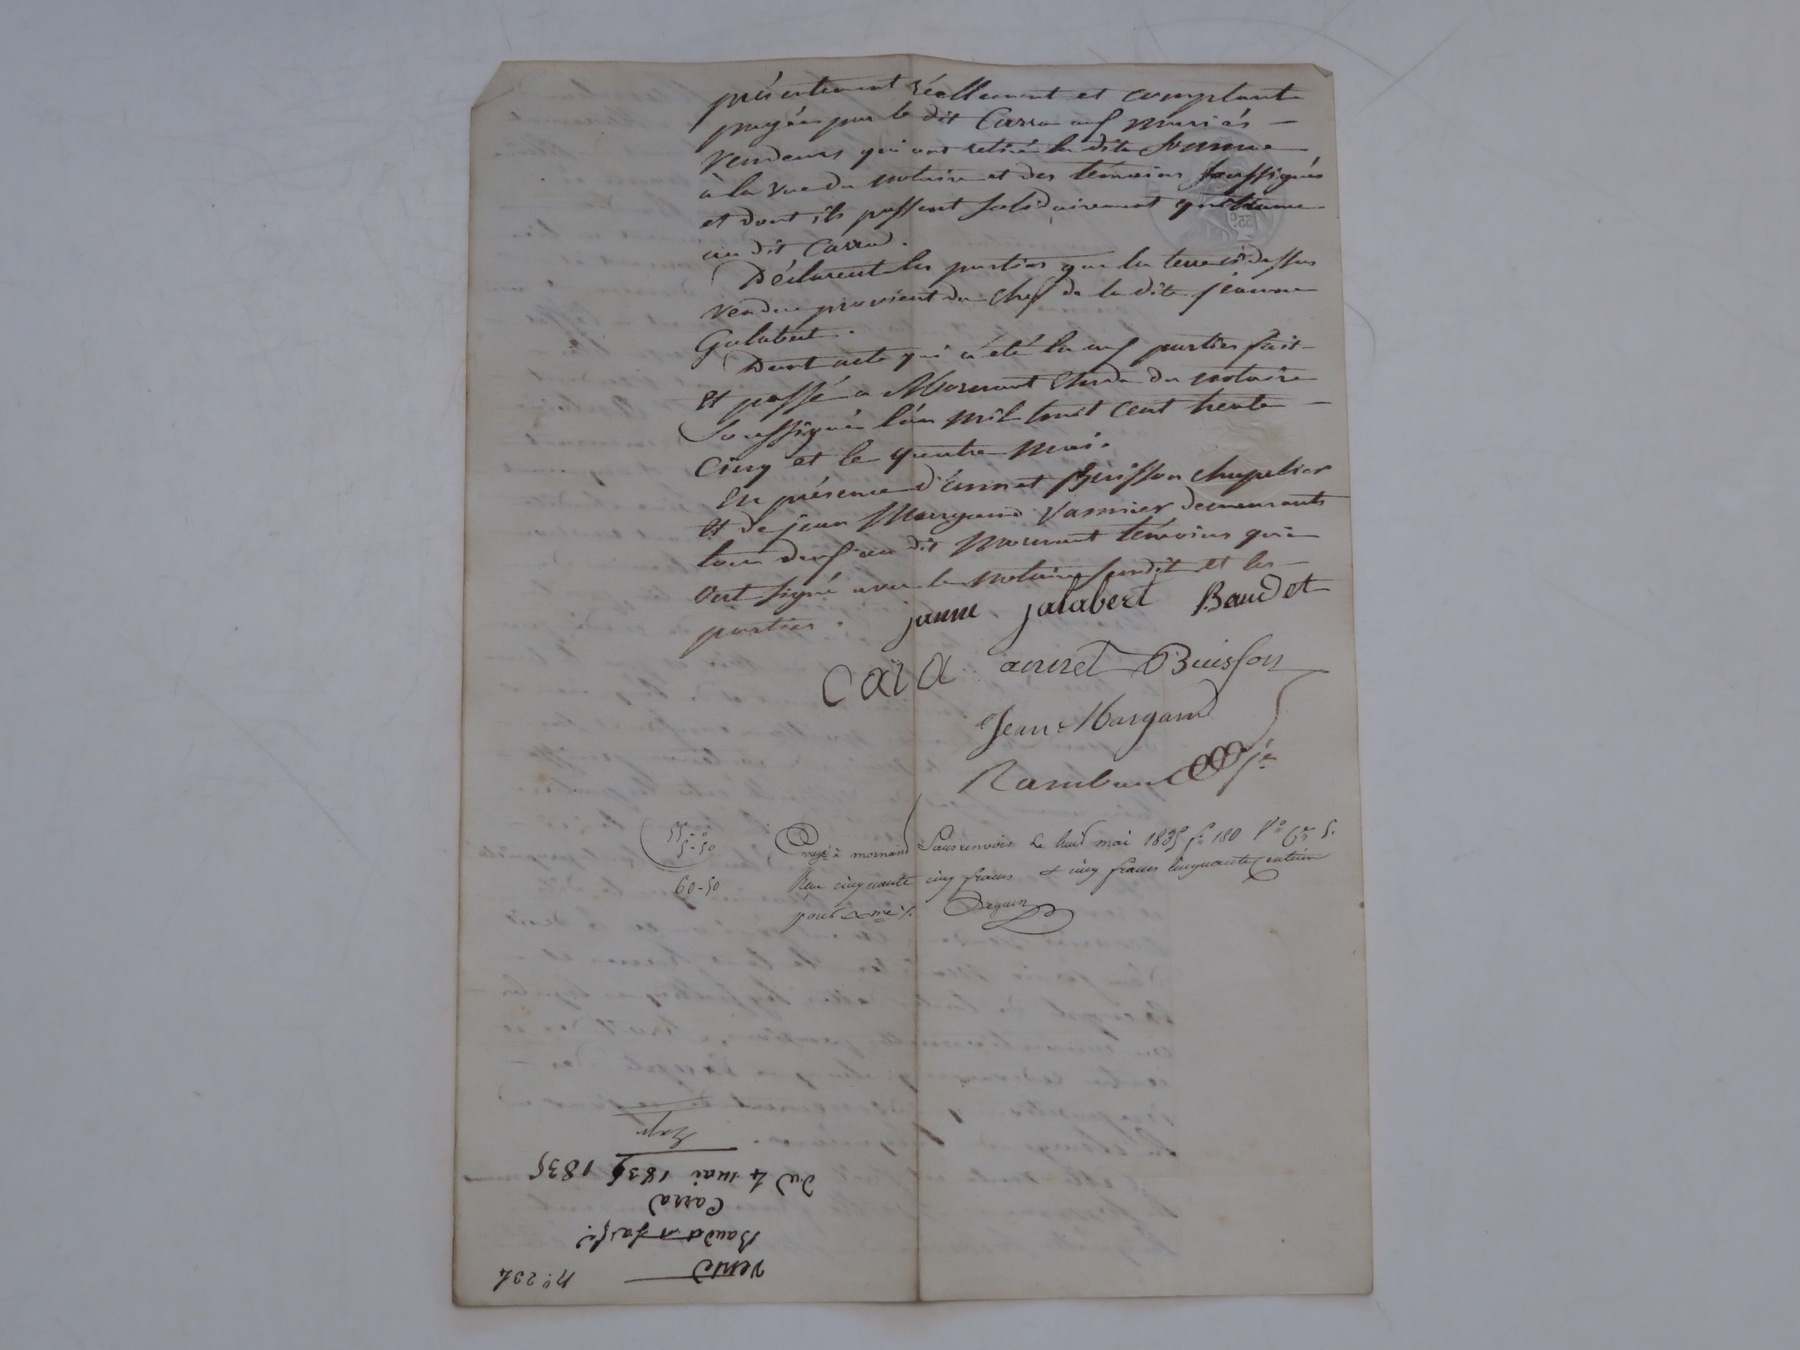 présentement réellement et comptant
payée par le dit Carra aux mariés
vendeurs qui ont retiré la dite Somme
à la vue du notaire et des témoins soussignés
et dont ils passent solidairement quittance
au dit Carra.
Déclarent les parties que la terre ci dessus
vendue provient du chef de la dite jeanne
Galabert.
Dont acte qui a été lu aux parties fait
et passé a Mornant Etude du notaire
soussigné l'an mil huit cent trente
cinq et le quatre mai.
En présence d'annet Buisson chapelier
et de jean Margand vannier demeurants
tous deux au dit Mornant témoins qui
ont signé avec le notaire susdit et les
parties.
janne jalabert Baudet
Cara annet Buisson
Jean Margand
Rambaud
55-"
5-50
60-50
à mornand Sans renvois le huit mai 1835 fo 180
Reçu cinquante cinq francs & cinq francs cinquante centimes
pour Xme
Deguin
No 234
Vente
Baudet
Carra
du 4 mai 1835 1835